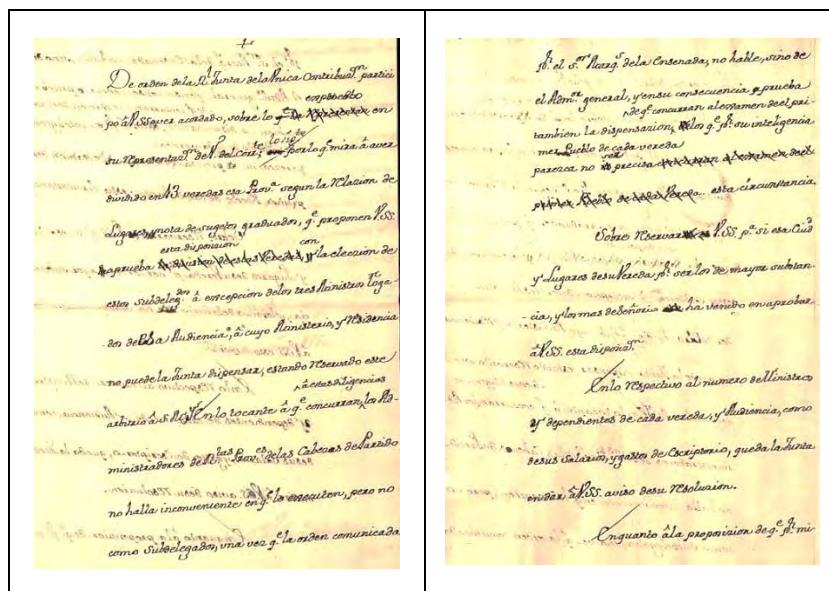 De orden de la Rl. Junta de la Unica Contribuon. partici
expuesto
po â VSS aver acordado, sobre lo qe. en
su representazon. de del Corrte. por lo qe. mira â aver
dividido en 13 veredas esa Prova. segun la Relazion de
Lugares, y nota de sugetos graduados, qe. proponen VSS.
esta disposizion con
aprueba la eleccion de
estos Subdelegdos. â excepcion de los tres Ministros Toga-
-dos de esa Audiencia, â cuyo Ministerio, y residencia
no puede la Junta dispensar, estando reservado este
â estas diligencias
arbitrio â S. M. En lo tocante â qe. concurran los Ad-
ministradores de Rtas. Proves. de las Cabezas de Partido
no halla inconveniente en qe. lo executen, pero no
como Subdelegados, una vez qe. la orden comunicada
pr. el Sor. Marqs. de la Ensenada, no hable, sino de
el Admor. general, y en su consecuencia aprueba
de qe. concurran al examen de el pri-
tambien la dispensazion, los qe. pr. su inteligencia
mer Pueblo de cada vereda
parezca no precisa
esta circunstancia.
Sobre reservar VSS pa. si esa Ciud.
y Lugares de su Vereda pr. ser los de mayor substan-
-cia, y los mas de Señorio ha venido en aprobar
â VSS. esta disposizon.
En lo respectivo al numero de Ministros
y dependientes de cada vereda, y Audiencia, como
de sus Salarios, y gastos de Escriptorio, queda la Junta
en dar â VSS. aviso de su resoluzion.
En quanto â la proposizion de qe. pr. mi-